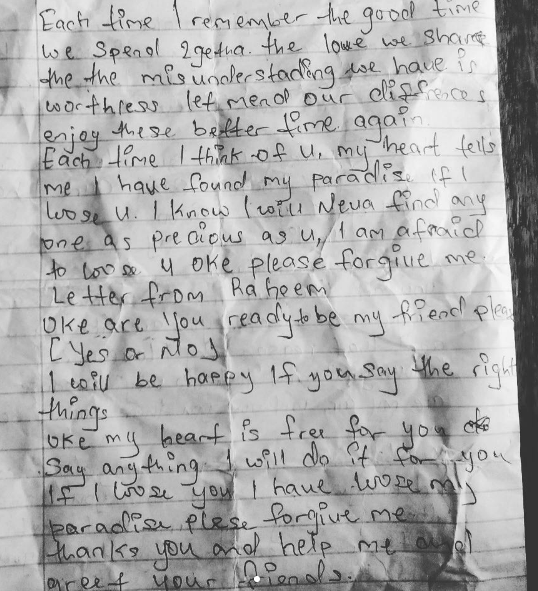 Each time I remember the good time
we spend 2getha. the love we share
the the misunderstading we have is
worthless let mend our differnces
enjoy these better time again.
Each time I think of u, my heart tells
me I have found my paradise if I
loose u. I know I will Neva find any
one as precious as u, I am afraid
to loose u oke please forgive me.
Letter from Raheem
oke are you ready to be my friend plea
[Yes or No]
I will be happy If you say the right
things
oke my heart is free for you
Say anything I will do it for you
If I loose you I have loose my
paradise plese forgive me
thanks you and help me and
greet your friends.